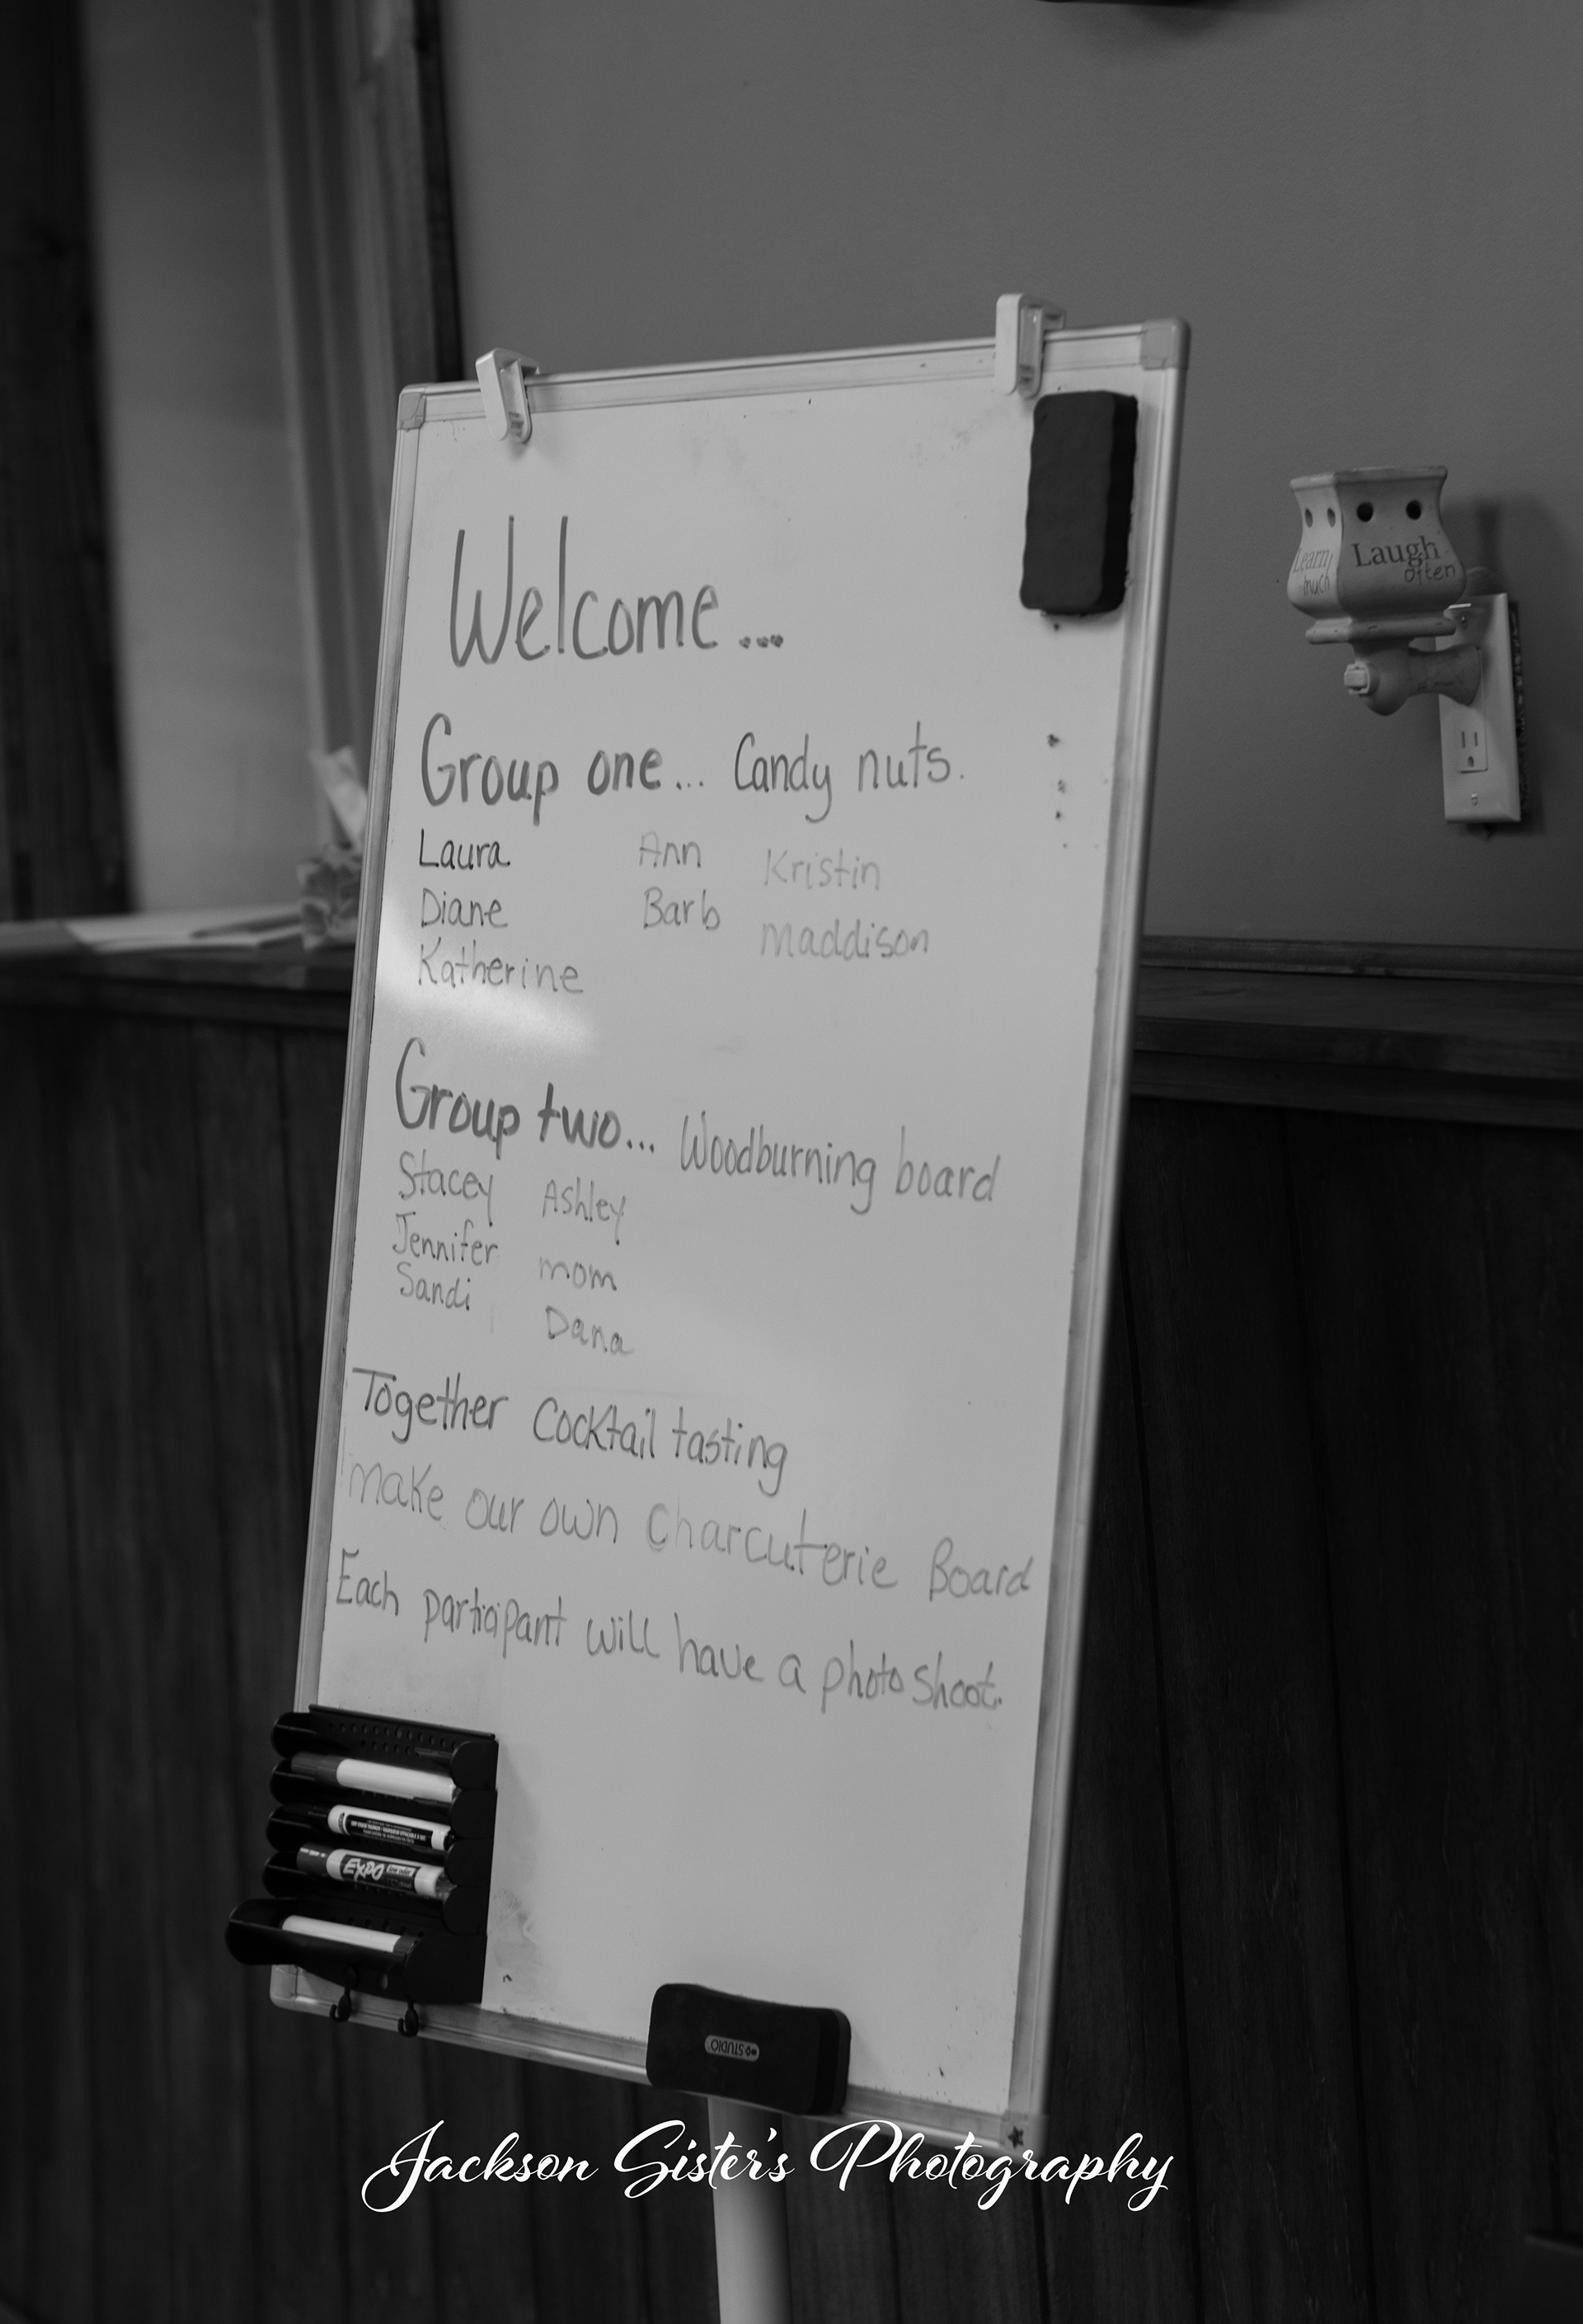 Welcome...
Group one... Candy nuts.
Laura Ann Kristin
Diane Barb Maddison
Katherine
Group two... Woodburning board
Stacey Ashley
Jennifer mom
Sandi Dana
Together Cocktail tasting
make our own Charcuterie Board
Each participant will have a photo shoot.
Learn much
Laugh often
EXPO
STUDIO
Jackson Sister's Photography